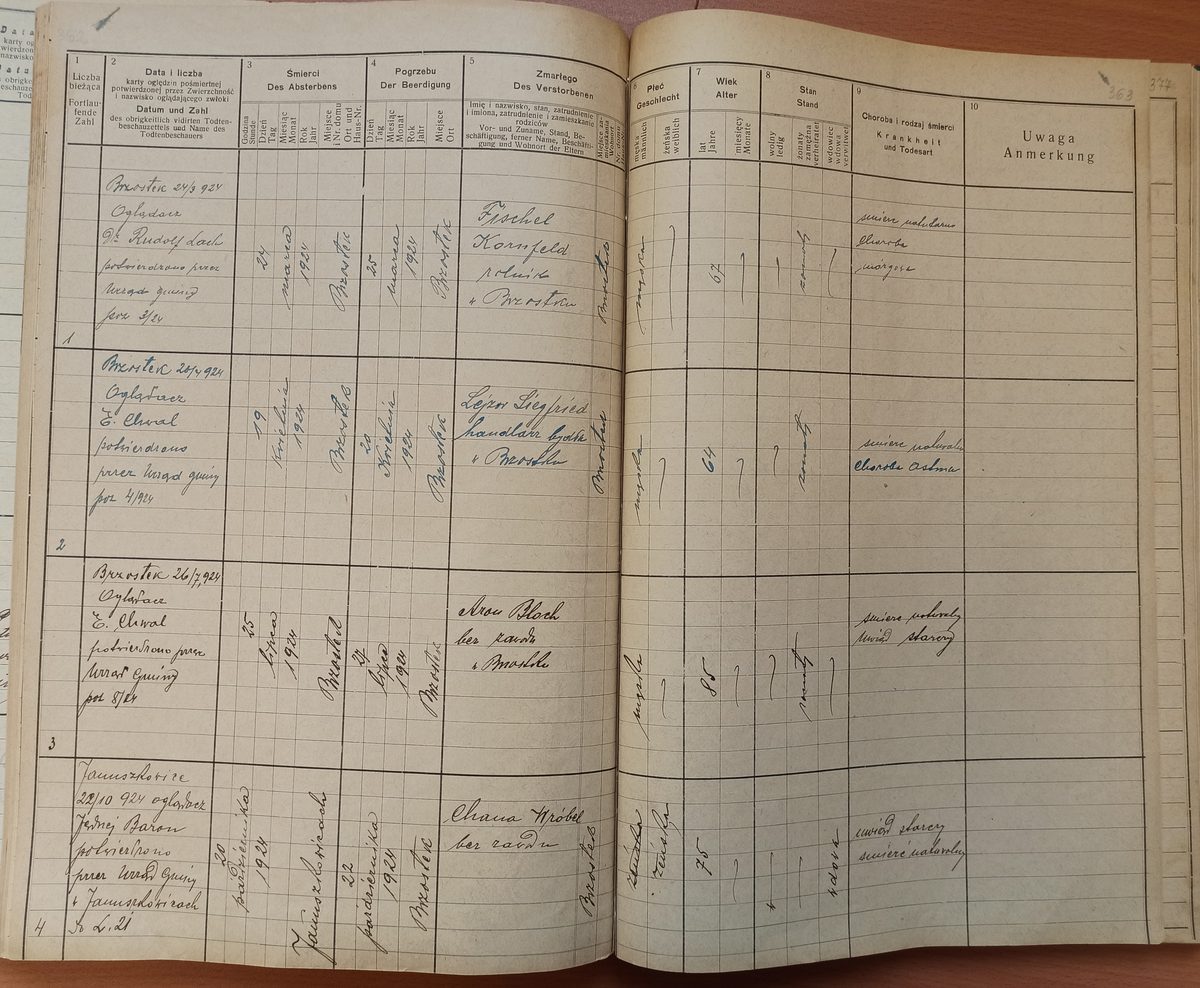 363
377
1
Liczba
bieżąca
Fortlau-
fende
Zahl
2
Data i liczba
karty oględzin pośmiertnej
potwierdzonej przez Zwierzchność
i nazwisko oglądającego zwłoki
Datum und Zahl
des obrigkeitlich vidirten Todten-
beschauzettels und Name des
Todtenbeschauers
3
Śmierci
Des Absterbens
Godzina
Stunde
Dzień
Tag
Miesiąc
Monat
Rok
Jahr
Miejsce
i Nr. domu
Ort und
Haus-Nr.
4
Pogrzebu
Der Beerdigung
Dzień
Tag
Miesiąc
Monat
Rok
Jahr
Miejsce
Ort
5
Zmarłego
Des Verstorbenen
Imię i nazwisko, stan, zatrudnienie
i imiona, zatrudnienie i zamieszkanie
rodziców
Vor- und Zuname, Stand, Be-
schäftigung, ferner Name, Beschäfti-
gung und Wohnort der Eltern
6
Płeć
Geschlecht
męska
männlich
żeńska
weiblich
7
Wiek
Alter
lat
Jahre
miesięcy
Monate
8
Stan
Stand
wolny
ledig
żonaty
zamężna
verheiratet
wdowiec
wdowa
verwitwet
9
Choroba i rodzaj śmierci
Krankheit
und Todesart
10
Uwaga
Anmerkung
1
Brzostek 24/3 924
Oglądacz
Dr Rudolf Lach
potwierdzono przez
Urząd gminy
poz 3/24
24
marca
1924
Brzostek
25
marca
1924
Brzostek
Fischel
Kornfeld
rolnik
w Brzostku
Brzostek
męska
67
żonaty
Choroba
2
Brzostek 20/4 924
Oglądacz
E. Chwal
potwierdzono
przez Urząd gminy
poz 4/924
19
Kwietnia
1924
Brzostek
20
Kwietnia
1924
Brzostek
Lejzor Siegfried
handlarz bydła
w Brzostku
Brzostek
męska
64
żonaty
śmierć naturalna
Choroba Astma
3
Brzostek 26/7 924
Oglądacz
E. Chwal
potwierdzono przez
Urząd Gminy
poz 8/24
25
lipca
1924
Brzostek
27
lipca
1924
Brzostek
Aron Bloch
bez zawodu
w Brzostku
męska
85
żonaty
uwiąd starczy
4
Januszkowice
22/10 924 oglądacz
Baron
potwierdzono
przez Urząd Gminy
w Januszkowicach
L. 21
20
październik
1924
Januszkowicach
22
października
1924
Brzostek
Chana Wróbel
bez zawodu
Brzostek
żeńska
75
wdowa
uwiąd starczy